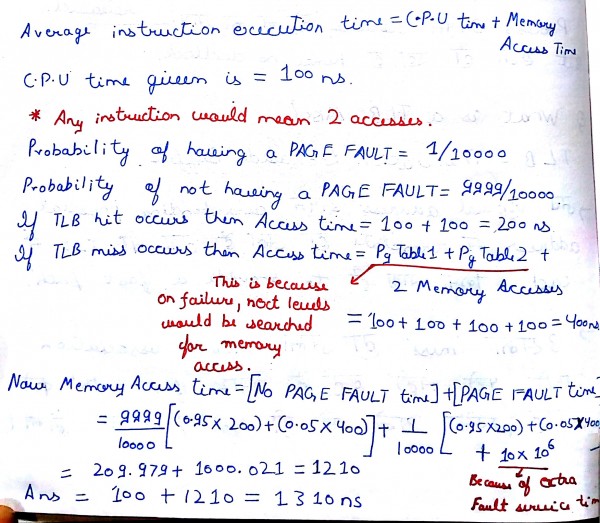 Average instruction execution time = C.P.U time + Memory
Access Time
C.P.U time given is = 100 ns.
* Any instruction would mean 2 accesses.
Probability of having a PAGE FAULT = 1/10000
Probability of not having a PAGE FAULT = 9999/10000
If TLB hit occurs then Access time = 100 + 100 = 200 ns
If TLB miss occurs then Access time = Pg Table 1 + Pg Table 2 +
2 Memory Accesses
This is because
on failure, next levels
would be searched
for memory
access.
= 100 + 100 + 100 + 100 = 400ns
Now Memory Access time = [No PAGE FAULT time] + [PAGE FAULT time]
= 9999/10000 [(0.95 x 200) + (0.05 x 400)] + 1/10000 [(0.95x200) + (0.05x400
+ 10 x 10^6
= 209.979 + 1000.021 = 1210
Because of extra
Fault service tim
Ans = 100 + 1210 = 1310 ns